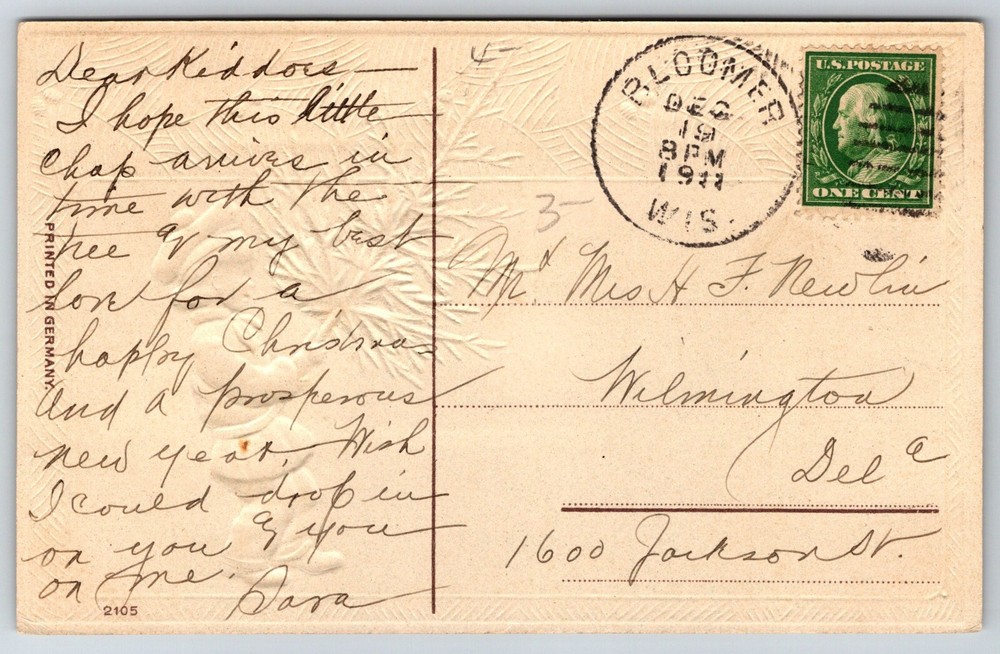 Dear Kiddoes —
I hope this little
chap arrives in
time with the
tree & my best
love for a
happy Christmas
And a prosperous
new year. Wish
I could drop in
on you & you
on me.
Sara
PRINTED IN GERMANY
2105
4-
3-
BLOOMER
DEC
19
8 PM
1911
WIS.
U.S. POSTAGE
ONE CENT
Mr & Mrs H F. Newlin
Wilmington
Dela
1600 Jackson St.